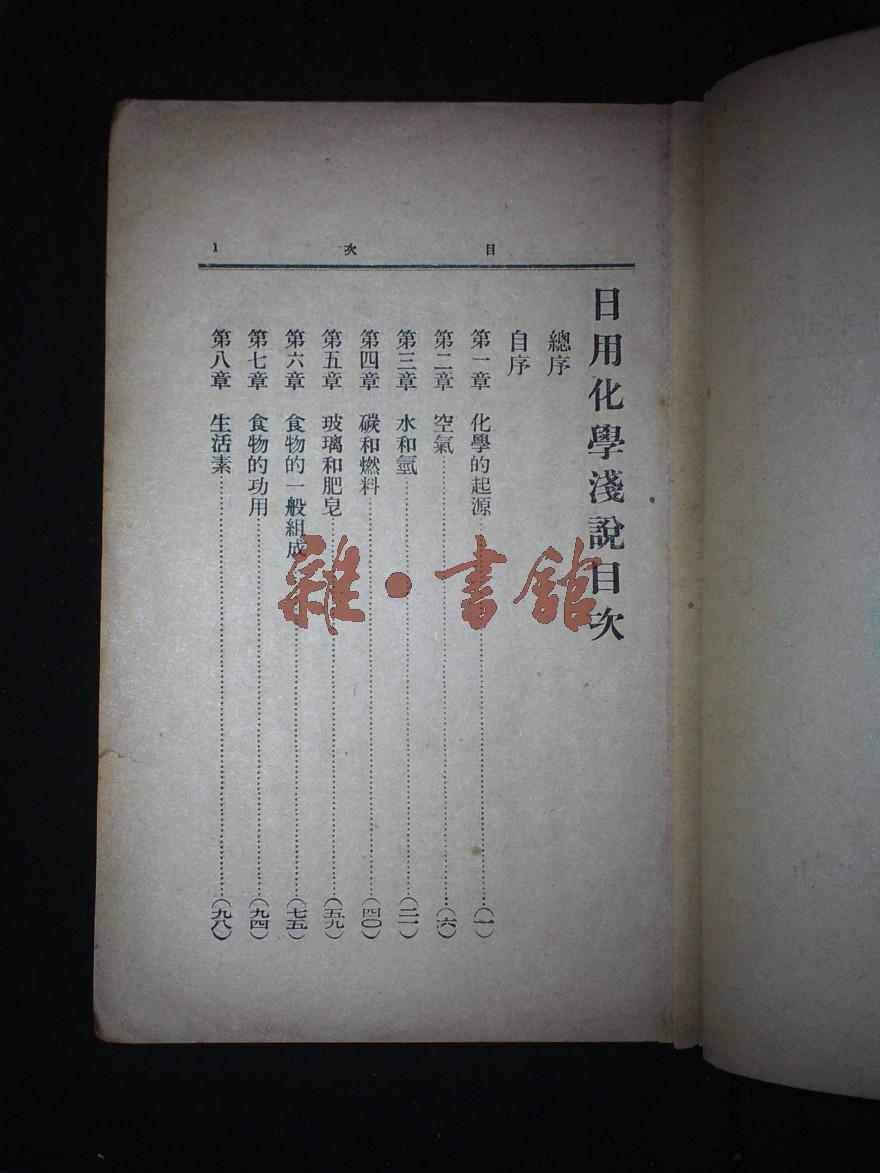 目次 1
日用化學淺說目次
總序
自序
第一章 化學的起源……(一)
第二章 空氣……(六)
第三章 水和氫……(二一)
第四章 碳和燃料……(四〇)
第五章 玻璃和肥皂……(五九)
第六章 食物的一般組成……(七五)
第七章 食物的功用……(九四)
第八章 生活素……(九八)
雜·書館